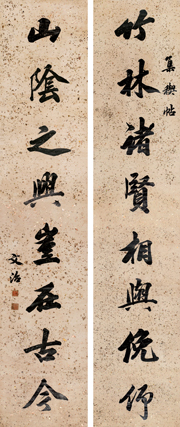 集禊帖
竹林諸賢相與俛仰
山陰之興豈在古今
文治